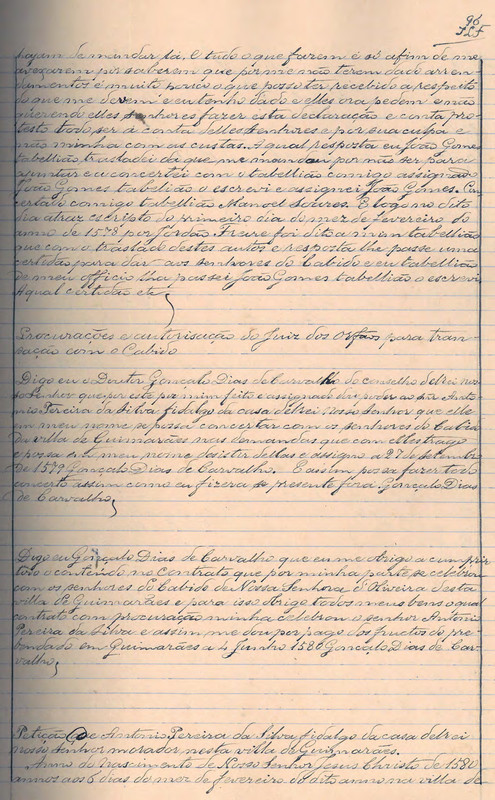 96
F L F
sejam de mandar pa. E tudo o que fazem é só afim de me
avexarem pir saberem que por me não terem dado arren-
damentos é muito pouco o que posso ter recebido a respeito
do que me devem e eu tenho dado e elles ora pedem e não
querendo elles senhores fazer esta declaração e conta pro-
testo todo ser á conta delles senhores e por sua culpa e
não minha com as custas. A qual resposta eu João Gomes
tabellião trasladei da que me mandou por não ser para
ajuntar e a concertei com o tabellião comigo assignado
João Gomes tabelião o escrevi e assignei João Gomes. Con-
certado comigo tabellião Manoel Soures. E logo no dito
dia atraz escripto do primeiro dia do mez de fevereiro do
anno de 1578 por Jordão Freire foi dito a mim tabellião
que com o traslado destes autos e resposta lhe passe uma
certidão para dar aos senhores do Cabido e eu tabellião
de meu officio lha passei João Gomes tabellião o escrevi
A qual certidão etc
Procurações e autorisação do Juiz dos Orfãos para tran-
sação com o Cabido
Digo eu o Doutor Gonçalo Dias de Carvalho do conselho delrei nos-
so Senhor que por este por mim feito e assignado dou poder ao snr Anto-
nio Pereira da Silva fidalgo da casa delrei Nosso Senhor que elle
em meu nome se possa concertar com os senhores do Cabido
da villa de Guimarães nas demandas que com elles trago
e possa em meu nome desistir dellas e assigno a 27 de setembro
de 1579 Gonçalo Dias de Carvalho. E assim possa fazer todo
concerto assim como eu fizera se presente fora Gonçalo Dias
de Carvalho
Digo eu Gonçalo Dias de Carvalho que eu me obrigo a cumprir
todo o conteudo no Contrato que por minha parte se celebrou
com os senhores do Cabido de Nossa Senhora d'Oliveira desta
villa de Guimarães e para isso obrigo todos meus bens o qual
contrato com procuração minha celebrou o senhor Antonio
Pereira da Silva e assim me dou por pago dos fructos do pre-
bendado em Guimarães a 4 Junho 1580 Gonçalo Dias de Car-
valho
Petição de Antonio Pereira da Silva fidalgo da casa delrei
nosso Senhor morador nesta villa de Guimarães.
Anno do Nascimento de Nosso Senhor Jesus Christo de 1580
annos aos 6 dias do mez de fevereiro do dito anno na villa de